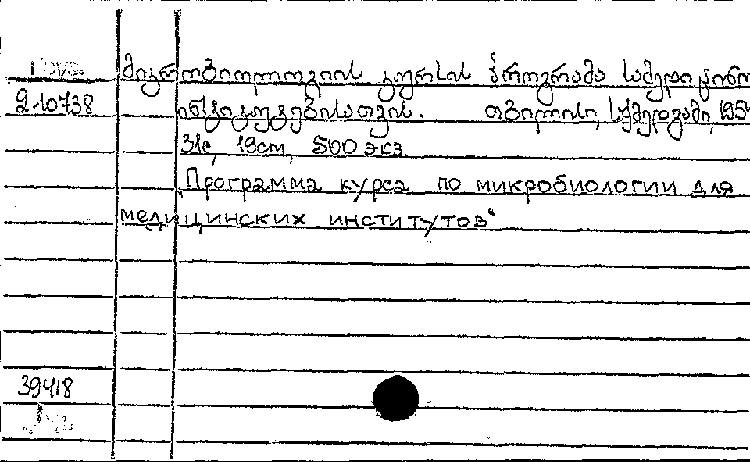 მიკრობიოლოგიის კურსის პროგრამა სამედიცინო
210738 ინსტიტუტებისათვის. თბილისი, საქმედგამი, 195
31с, 19cm, 500 экз
„Программа курса по микробиологии для
медицинских институтов“
39418